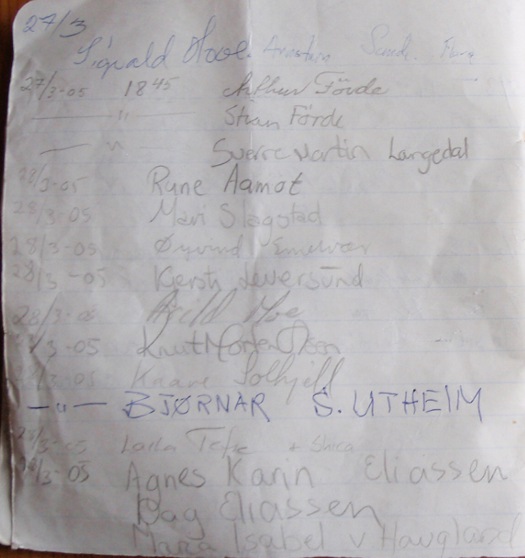 27/3
Sigvald
27/3-05 18 45 Arthur Förde
" Stian Förde
" Sverre Martin Langedal
28/3-05 Rune Aamot
28/3-05 Mari Slagstad
28/3-05 Øyvind
28/3-05 Kjersti Leversund
28/3-05 Arild Moe
28/3-05 Knut Morten Olson
28/3-05 Knare Solhjell
-"- BJØRNAR S. UTHEIM
28/3-05 Laila
28/3-05 Agnes Karin Eliassen
Dag Eliassen
Maria Isabel v Haugland